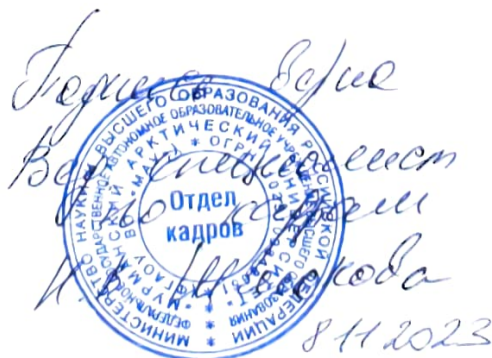 Подпись верна
Вед. специалист
по кадрам
8 11 2023
МИНИСТЕРСТВО НАУКИ И ВЫСШЕГО ОБРАЗОВАНИЯ РОССИЙСКОЙ ФЕДЕРАЦИИ
ФЕДЕРАЛЬНОЕ ГОСУДАРСТВЕННОЕ АВТОНОМНОЕ ОБРАЗОВАТЕЛЬНОЕ УЧРЕЖДЕНИЕ ВЫСШЕГО ОБРАЗОВАНИЯ
МУРМАНСКИЙ АРКТИЧЕСКИЙ УНИВЕРСИТЕТ
ОГРН
Отдел
кадров